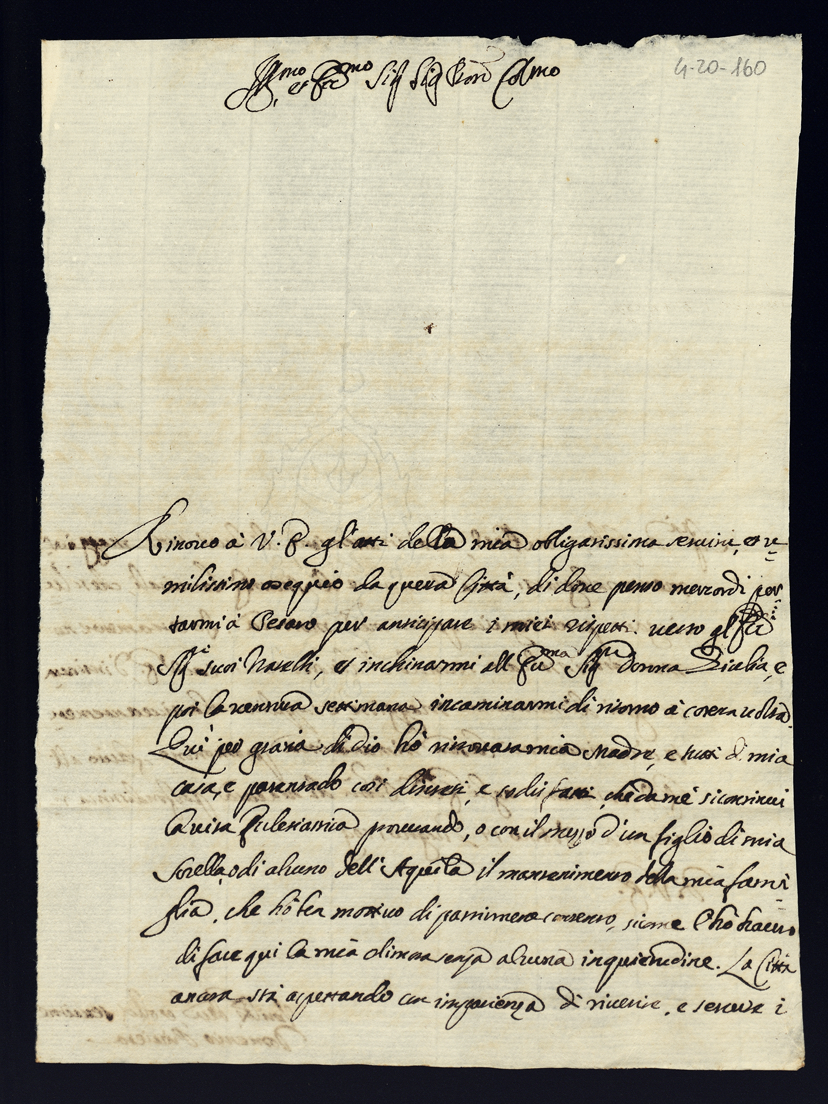 Ill.mo et Ecc.mo Sig.r Sig.r Pron Col.mo
4-20-160
Rinovo à V. E. gl'atti della mia obligatissima servitù, et u=
milissimo ossequio da questa Città, di dove penso mercordì por=
tarmi à Pesaro per anticipare i miei rispetti verso gl'Ecc.mi
Sig.ri suoi Fratelli, et inchinarmi all'Ecc.ma Sig.ra Donna Giulia, e
poi la ventura settimana incaminarmi di ritorno à cotesta volta.
Quì per grazia di Dio hò ritrovata mia Madre, e tutti di mia
casa, e parentado così discreti, e sodisfatti, che da me si continui
la vita Eclesiastica procurando, o con il mezzo d'un figlio di mia
sorella, o di alcuno dell'Aquila il mantenimento della mia fami=
glia, che hò ben motivo di partirmene contento, sicome l'hò havuto
di fare qui la mia dimora senza alcuna inquietudine. La Città
ancora stà aspettando con impazienza di ricevere, e servire i